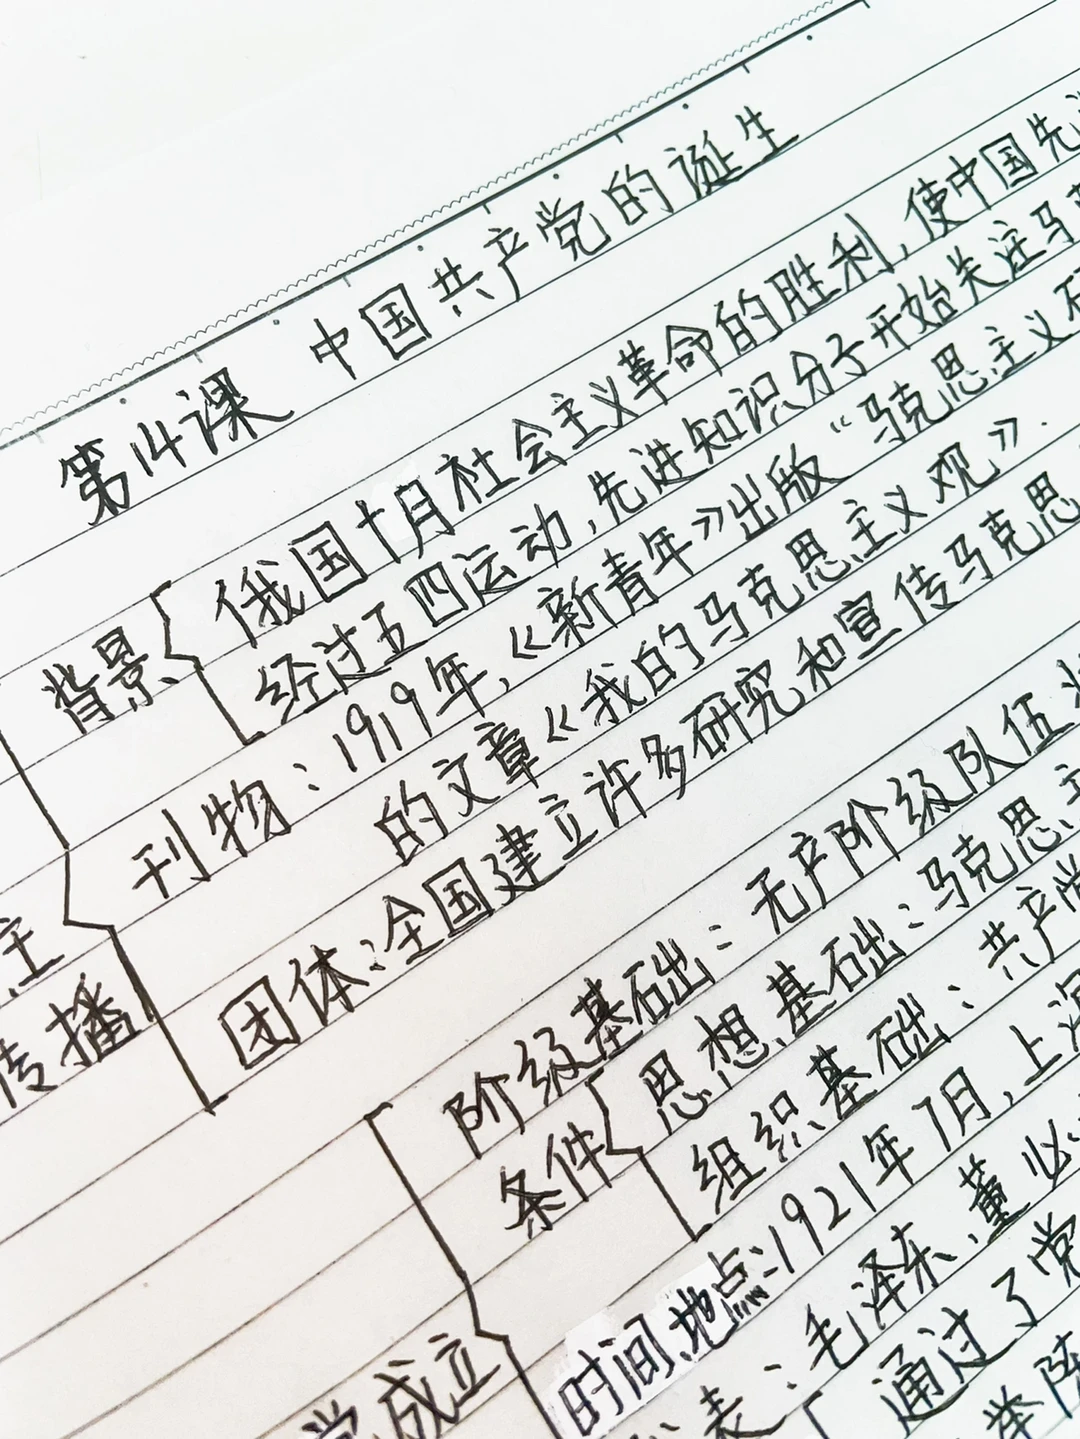 第14课 中国共产党的诞生
俄国十月社会主义革命的胜利,使中国先
背景
经过五四运动,先进知识分子开始关注马
刊物:1919年,《新青年》出版“马克思主义研
的文章《我的马克思主义观》.
团体:全国建立许多研究和宣传马克思
主
传播
阶级基础:无产阶级队伍
条件
思想基础:马克思主
组织基础:共产党
时间、地点:1921年7月,上海
表:毛泽东、董必
成立
通过了党
举